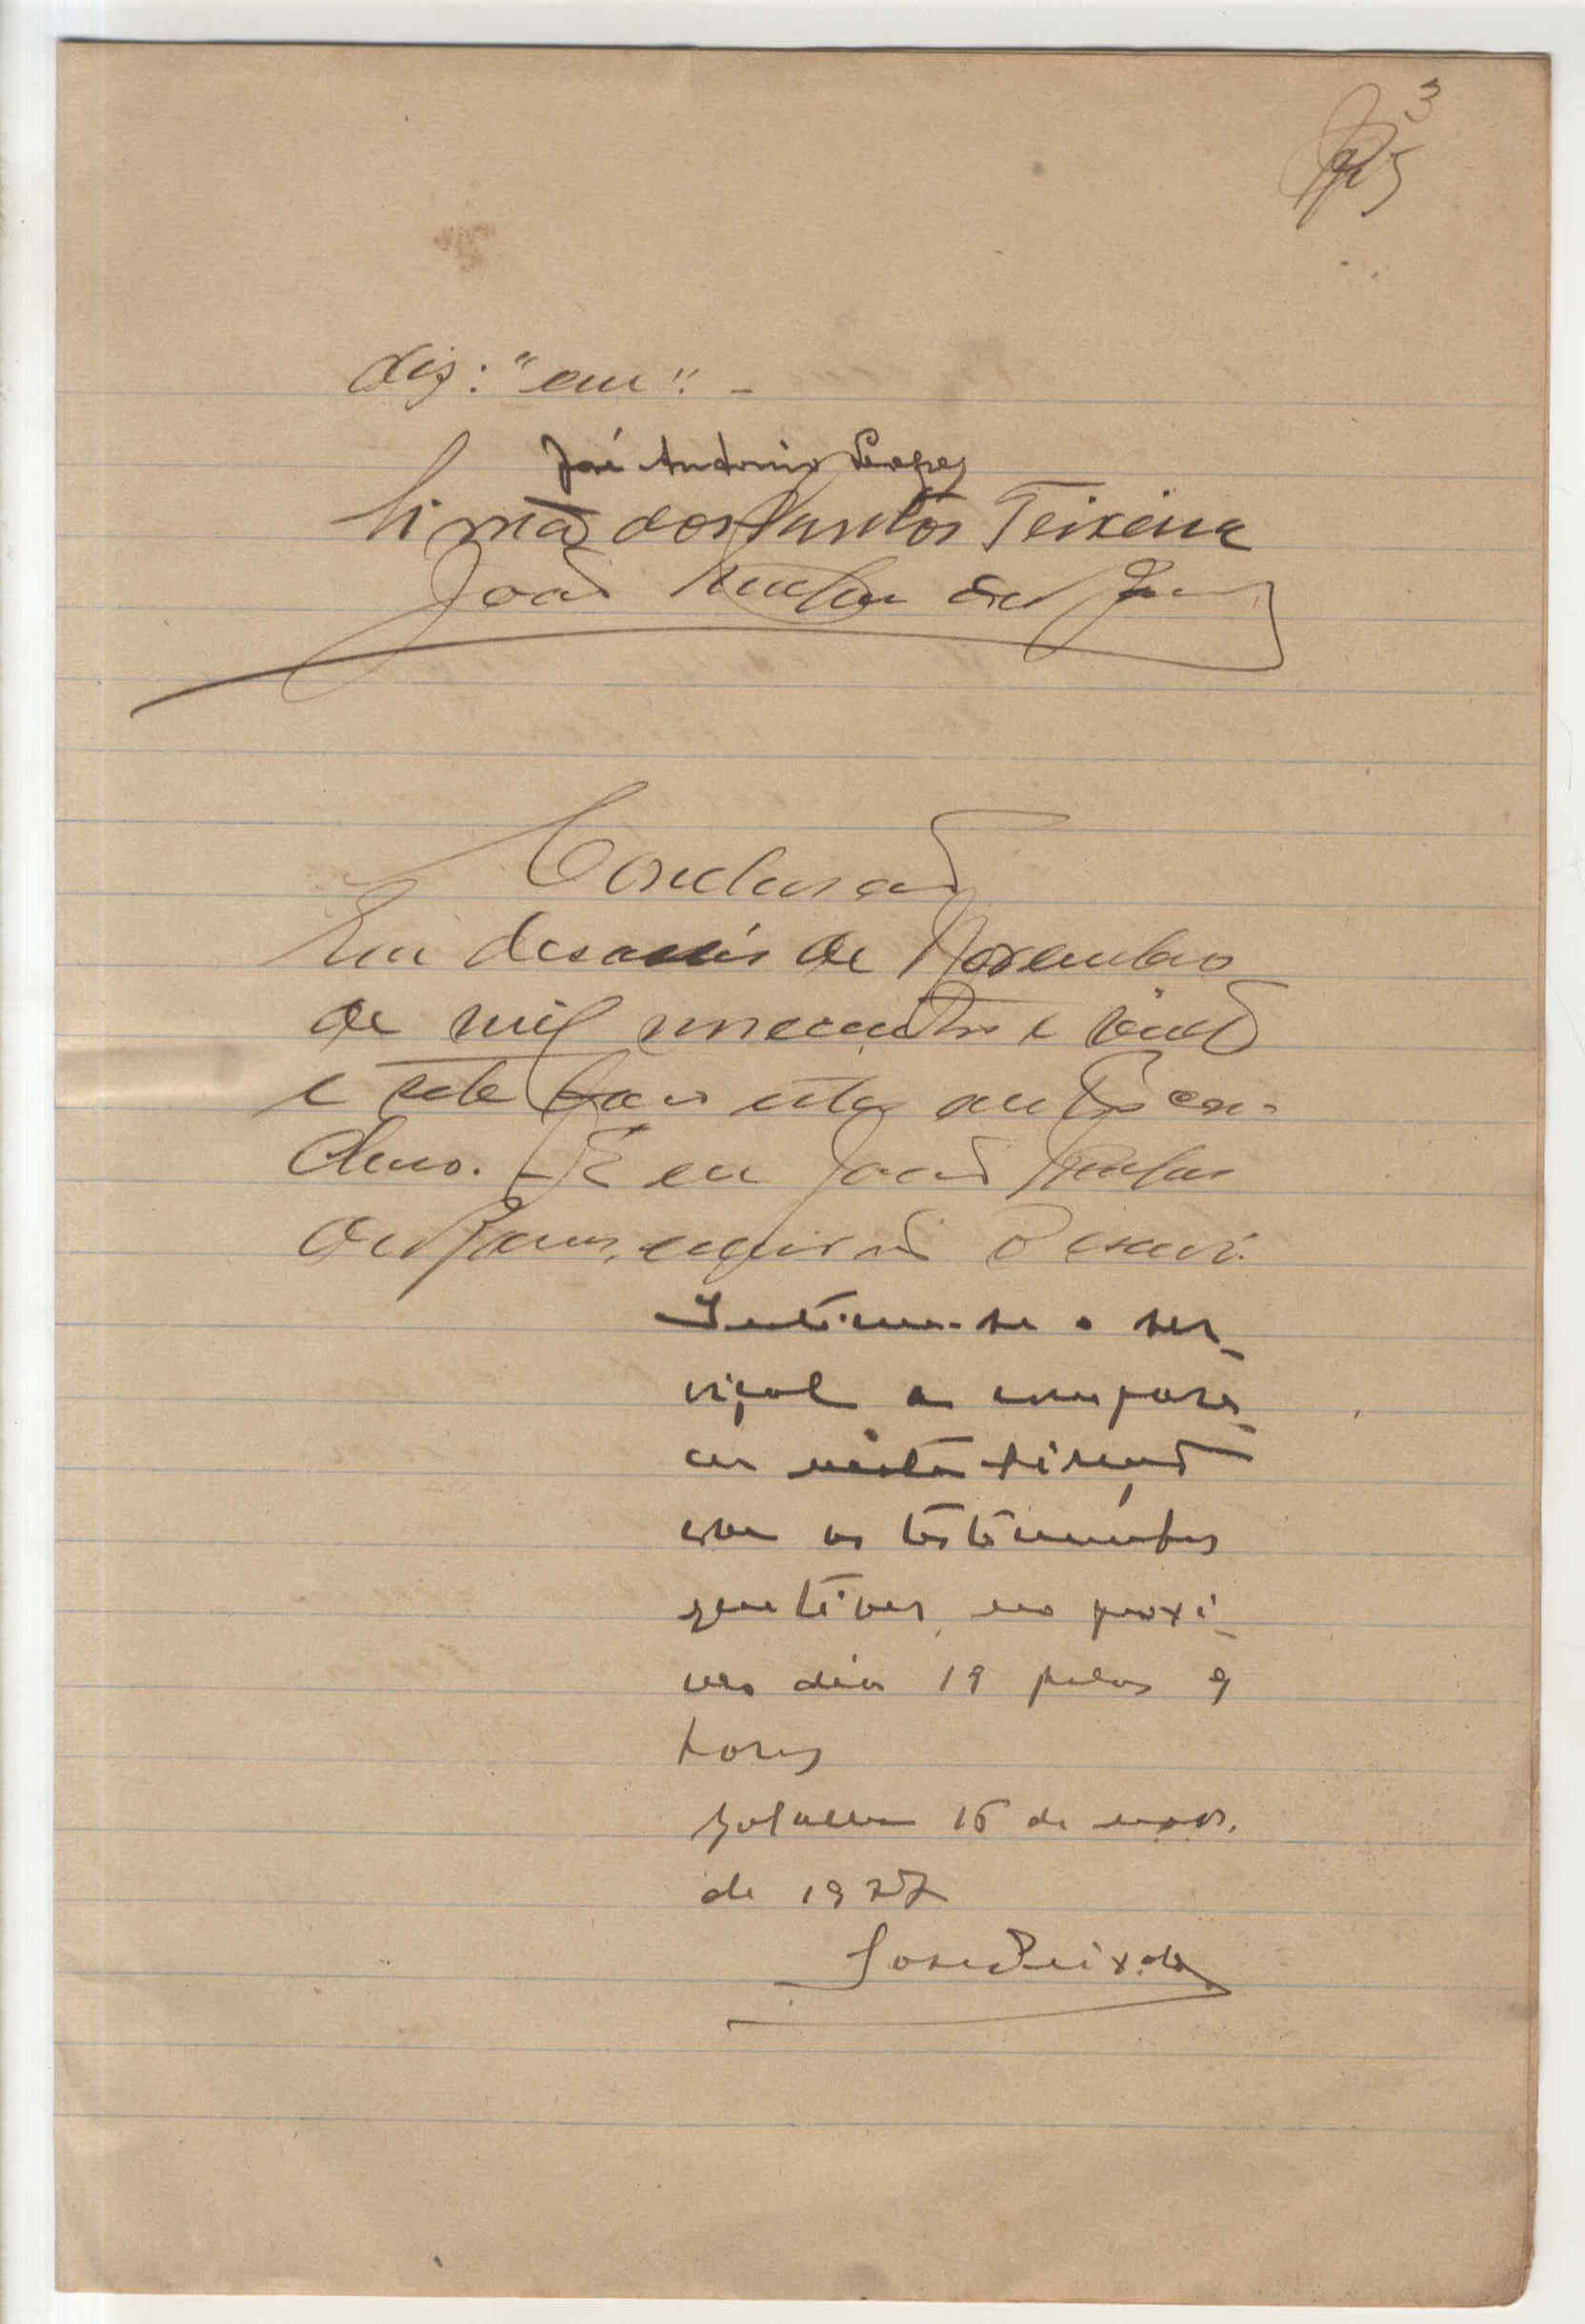 3
5
diz: "em". -
José Antonio Lopes
Simão dos Santos Teixeira
João
Conclusão
Em desaseis de Novembro
de mil novecentos e vinte
e sete faço estes autos con-
clusos. - E eu João
escrivão o escrevi.
Intime-se o ser-
viçal a compare-
cer nesta
com as testemunhas
no proxi-
mo dia 19 pelas 9
horas
16 de novo.
de 1927
José Peixoto